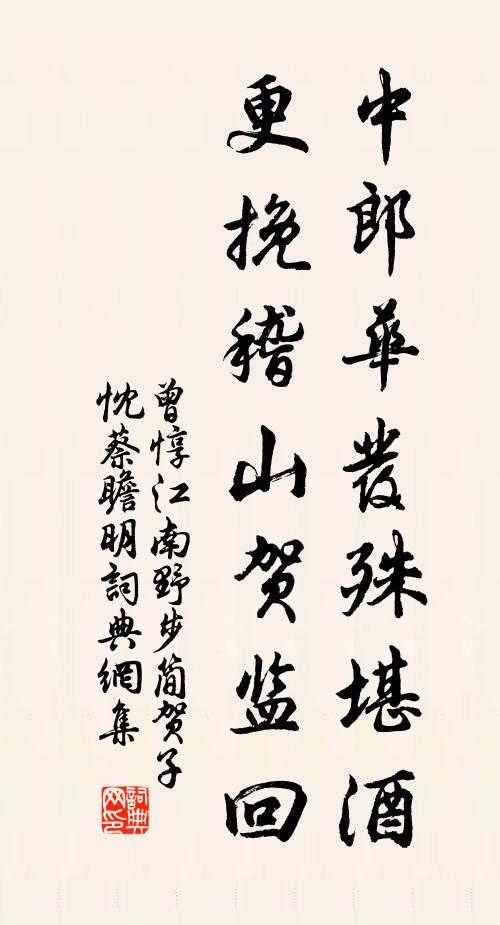 中郎華發殊堪酒
更挽稽山贺监回
曾惇江南野步简贺子
忱蔡瞻明詞典網集
詞典
网印